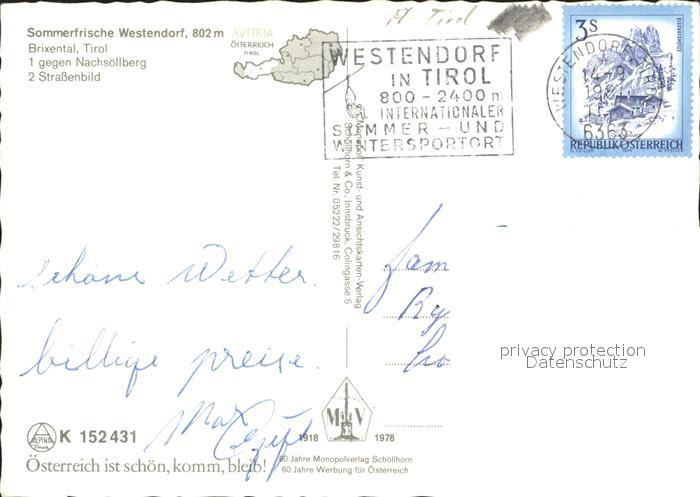 Sommerfrische Westendorf, 802 m
Brixental, Tirol
1 gegen Nachsöllberg
2 Straßenbild
AUSTRIA
ÖSTERREICH
TIROL
A Tirol
WESTENDORF
IN TIROL
800-2400 m
INTERNATIONALER
SOMMER- UND
WINTERSPORTORT
WESTENDORF
6363
3 S
REPUBLIK ÖSTERREICH
Monopol Kunst- und Ansichtskarten-Verlag
Schöllhorn & Co, Innsbruck, Colingasse 6
Tel. Nr. 05222/29816
schöne Wetter.
billige preise.
Max
Fam
privacy protection
Datenschutz
ALPINA
K 152431
1918 MV 1978
Österreich ist schön, komm, bleib!
60 Jahre Monopolverlag Schöllhorn
60 Jahre Werbung für Österreich